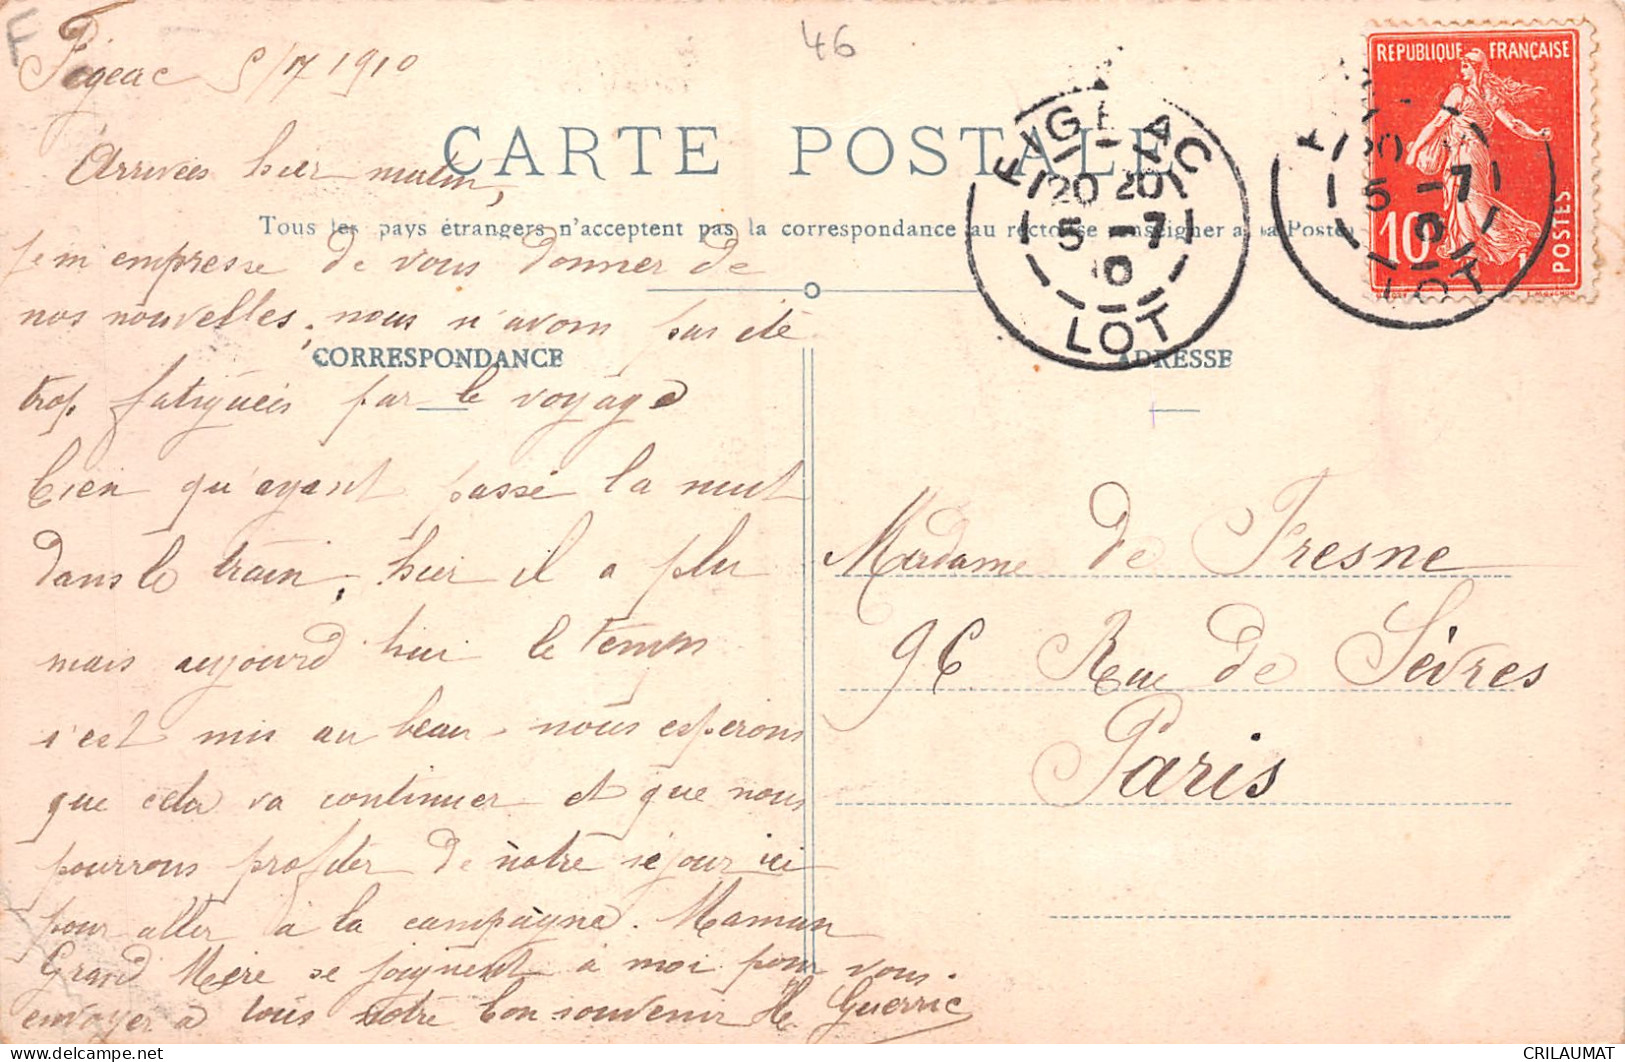 46
Figeac 5/7 1910
CARTE POSTALE
Tous les pays étrangers n'acceptent pas la correspondance au recto se renseigner à la Poste
Arrivées hier matin,
je m'empresse de vous donner de
nos nouvelles, nous n'avons pas été
CORRESPONDANCE
trop fatiguées par le voyage
bien qu'ayant passé la nuit
dans le train, hier il a plu
mais aujourd'hui le temps
s'est mis au beau, nous esperons
que cela va continuer et que nous
pourrons profiter de nôtre séjour ici
pour aller à la campagne. Maman
Grand Mère se joignent à moi pour vous
envoyer à tous notre bon souvenir M. Guerric
FIGEAC
20 20
5 -7
10
LOT
REPUBLIQUE FRANÇAISE
10c
POSTES
5 -7
LOT
ADRESSE
Madame de Fresne
96 Rue de Sèvres
Paris
CRILAUMAT